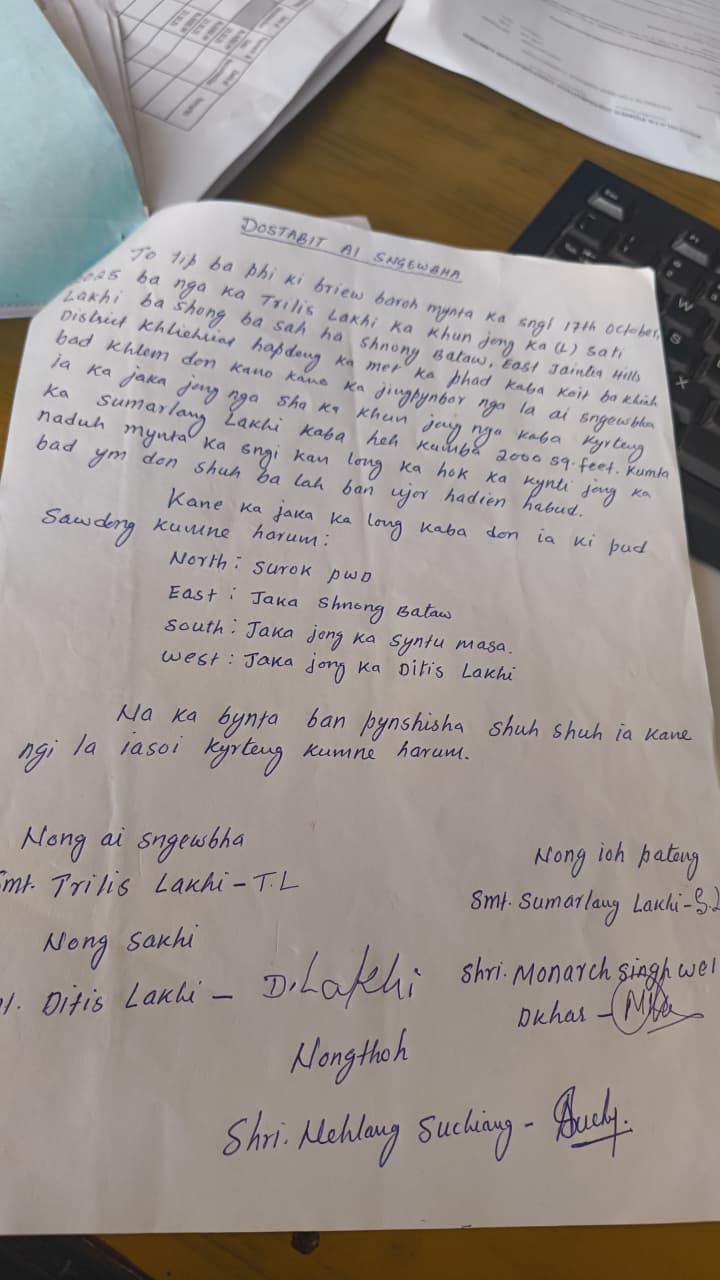 DOSTABIT AI SNGEWBHA
To tip ba phi ki briew baroh mynta ka sngi 17th October,
2025 ba nga ka Trilis Lakhi ka khun jong ka (L) Sati
Lakhi ba shong ba sah ha shnong Bataw, East Jaintia Hills
District Khliehriat hapdeng ka met ka phad kaba koit ba khiah
bad khlem don kano kano ka jingpynbor nga la ai sngewbha
ia ka jaka jong nga sha ka khun jong nga kaba kyrteng
ka Sumarlang Lakhi kaba heh kumba 2000 sq.feet. Kumta
naduh mynta ka sngi kan long ka hok ka kynti jong ka
bad ym don shuh ba lah ban ujor hadien habud.
Kane ka jaka ka long kaba don ia ki pud
sawdong kumne harum:
North: Surok PWD
East: Jaka Shnong Bataw
South: Jaka jong ka Syntu Masa.
West: Jaka jong ka Ditis Lakhi
Na ka bynta ban pynshisha shuh shuh ia kane
ngi la iasoi kyrteng kumne harum.
Nong ai sngewbha
Smt. Trilis Lakhi - T.L
Nong ioh pateng
Smt. Sumarlang Lakhi - S.L
Nong sakhi
Ditis Lakhi - D.Lakhi
Shri. Monarch Singh wel
Dkhar -
Nongthoh
Shri. Nehlang Suchiang -